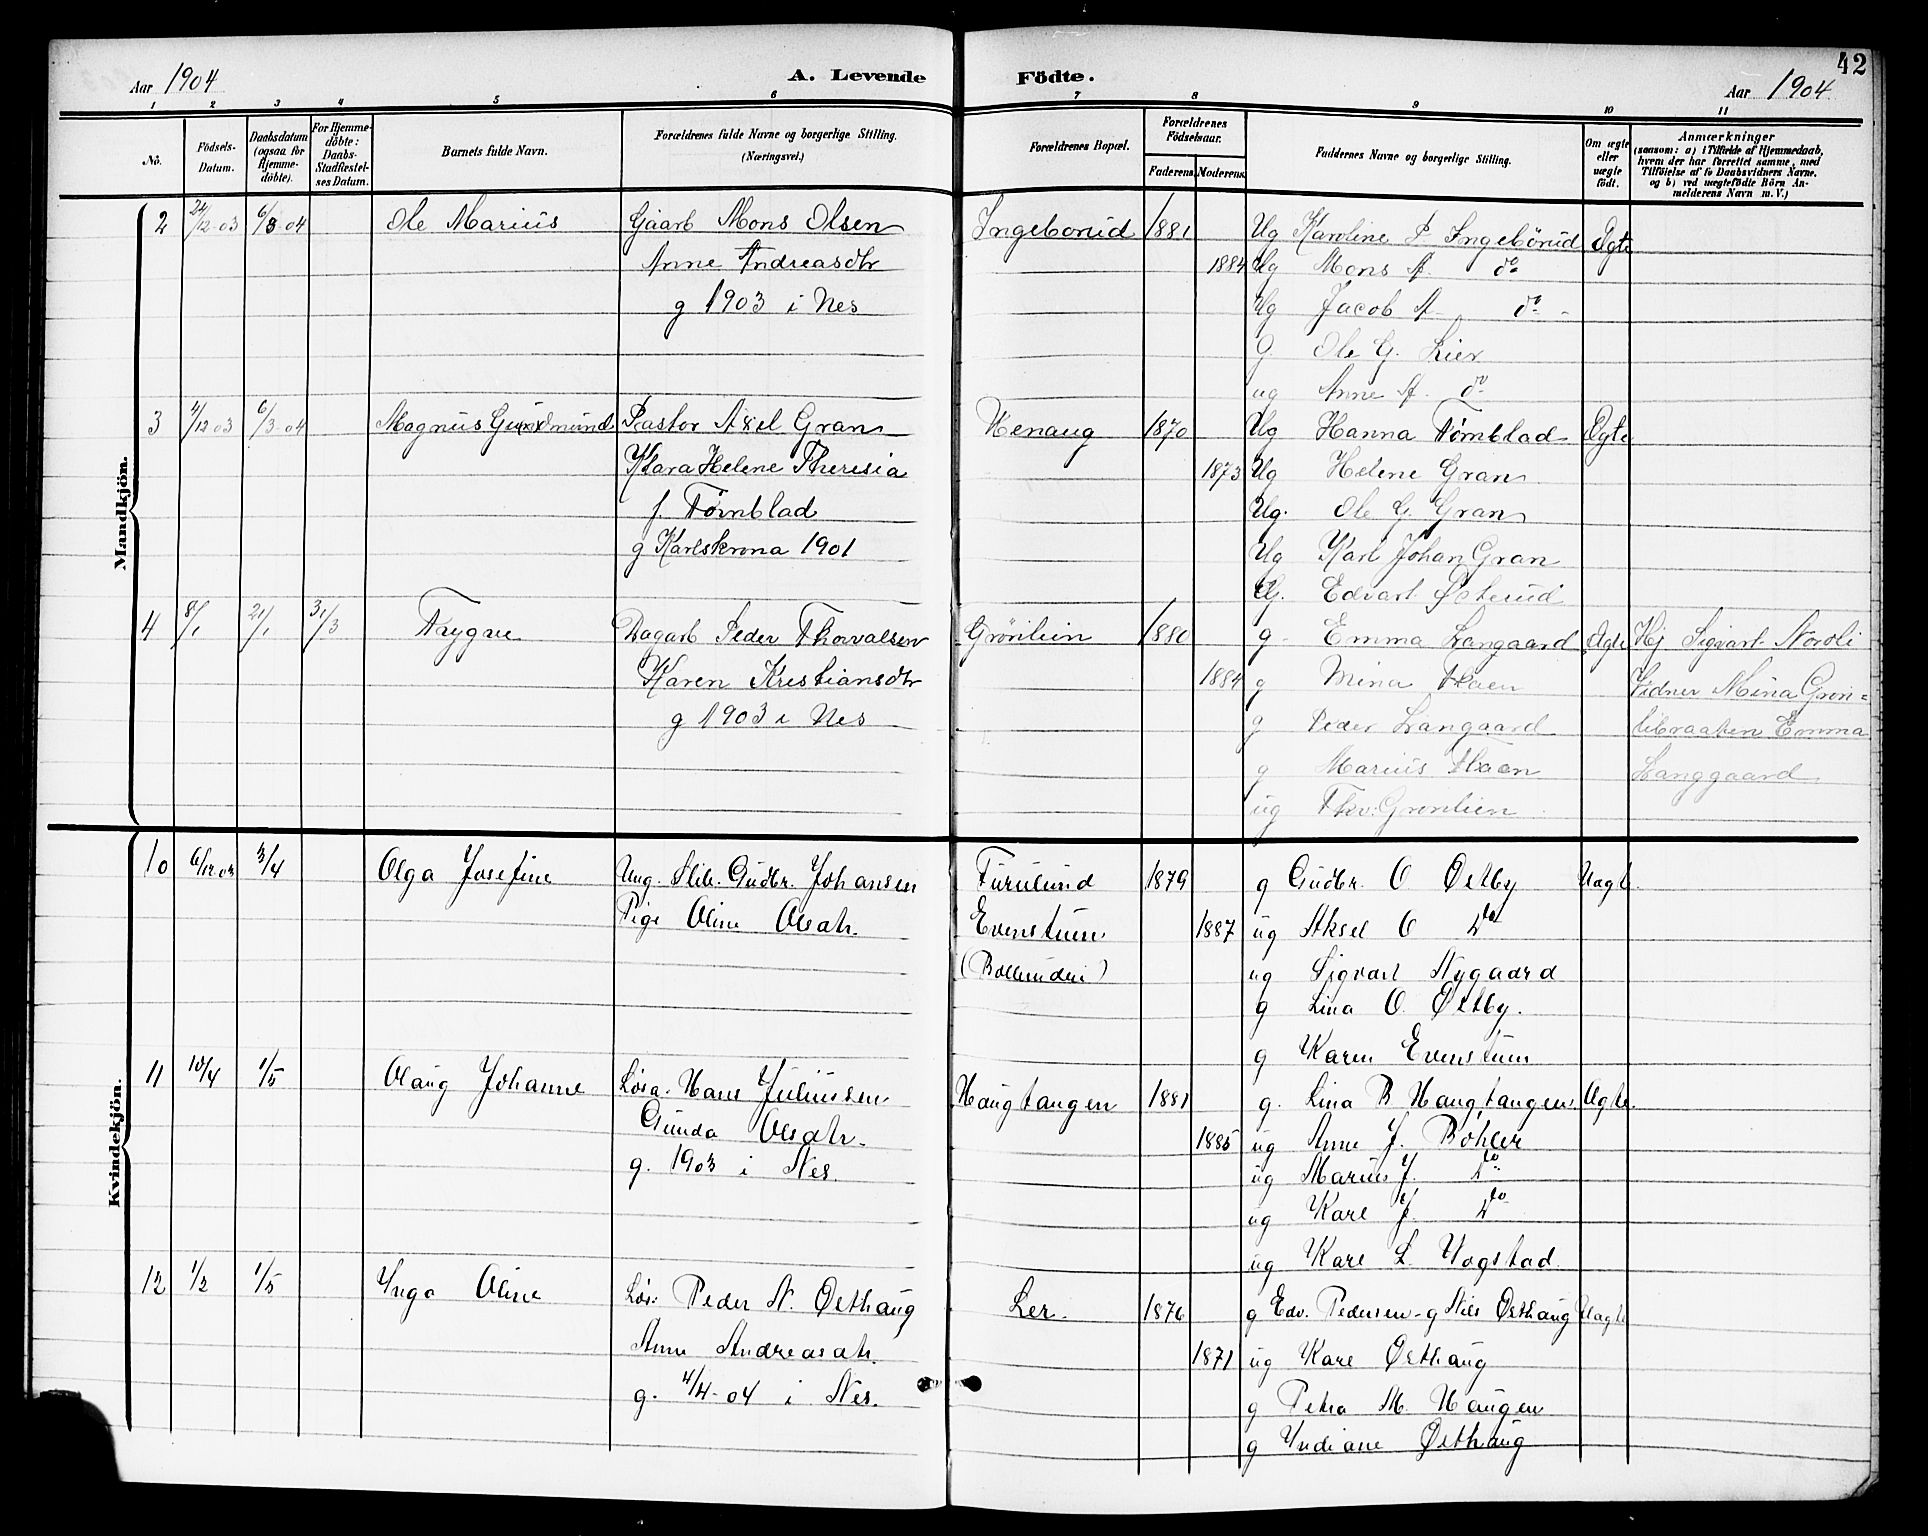 42
Aar 1904 A. Levende Födte. Aar 1904
1 2 3 4 5 6 7 8 9 10 11
No. Födsels-Datum. Daabsdatum (ogsaa for Hjemme-döbte). For Hjemme-döbte: Daabs-Stadfæstel-ses Datum. Barnets fulde Navn. Forældrenes fulde Navne og borgerlige Stilling. (Næringsvei.) Forældrenes Bopæl. Forældrenes Födselsaar. Faderens. Moderens. Faddernes Navne og borgerlige Stilling. Om ægte eller uægte födt. Anmærkninger (saasom: a) i Tilfælde af Hjemmedaab, hvem der har forrettet samme, med Tilföielse af to Daabsvidners Navne, og b) ved uægtefödte Börn An-melderens Navn m. V.)
Mandkjön.
2 24/12-03 6/3-04 Ole Marius Gaarb Mons Olsen Ingeborud 1881 Ug Karoline P Ingebörud Ægte
Anne Andreasdtr 1884 Ug Mons A. do
g 1903 i Nes Ug Jacob A do -
G Ole G. Lier
ug Anne A. do
3 4/12 03 6/3-04 Magnus Gudmund Pastor Axel Gran Henaug 1870 Ug Hanna Törnblad Ægte
Klara Helene Theresia 1873 Ug Helene Gran
f. Törnblad Ug. Ole G. Gran
g Karlskrona 1901 Ug Karl Johan Gran
G. Edvart Østerud
4 8/1 21/1 31/3 Trygve Dagarb Peder Thorvalsen Grönlien 1880 g. Emma Langaard Ægte Hj Sigvart Nordli
Karen Kristiansdtr 1884 g Mina Haen Vidner Mina Grøn=
g 1903 i Nes g Peder Langaard libraaten Emma
g Marius Haen Langgaard
ug Thv. Grønlien
Kvindekjön.
10 6/12 03 3/4 Olga Josefine Ung. Slib. Gudbr. Johansen Furulund 1879 g Gudbr. O Østby Uægt.
Pige Oline Olsdtr. Evenstuen 1887 ug Aksel O Do
(Bollerudei) ug Sigvart Nygaard
g Lina O. Østby.
g Karen Evenstuen
11 10/4 1/5 Olaug Johanne Løsa. Hans Juliussen Haugtangen 1881 g. Lina B Haugtangen. Ægte.
Gunda Olsdtr. 1885 ug Anne J. Bohler
g. 1903 i Nes. ug Marius J. Do
ug Karl J. Do
ug Karl L. Hogstad
12 1/2 1/5 Inga Oline Løs: Peder N. Østhaug Ler. 1876 g Edv. Pedersen - g Nils Østhaug Uægte
Anne Andreasdtr. 1871 ug Karl Østhaug
g. 4/4-04 i Nes. g Petra M. Haugen
g Indiane Østhaug